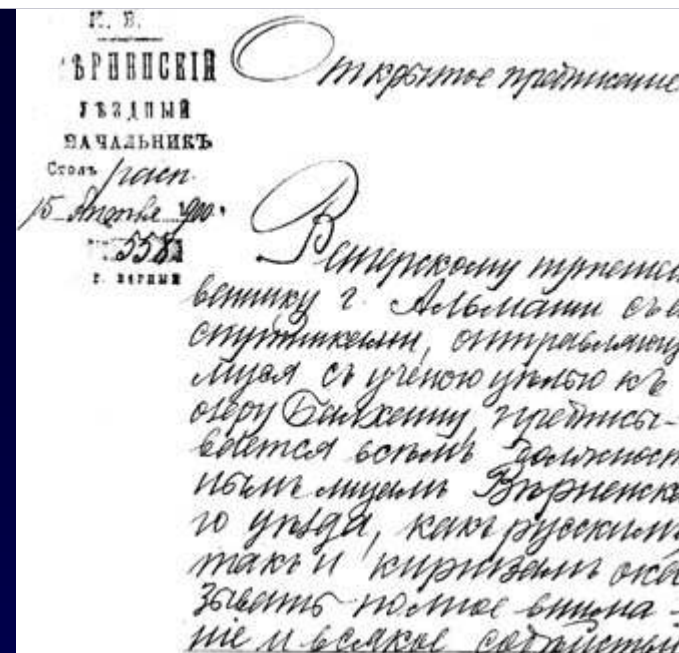 М. В.
ѢРНЕНСКІЙ
УѢЗДНЫЙ
НАЧАЛЬНИКЪ
Столъ расп.
15 Апрѣля 1900 г.
558
г. Вѣрный
Открытое предписаніе
Венгерскому путешест
веннику г. Альмаши съ е
спутниками, отправляющ
мися съ ученою цѣлью къ
озеру Балхашу, предписы-
вается всѣмъ должност
нымъ лицамъ Вѣрненска
го уѣзда, какъ русскимъ
такъ и киргизамъ ока
зывать полное внима-
ніе и всякое содѣйстві